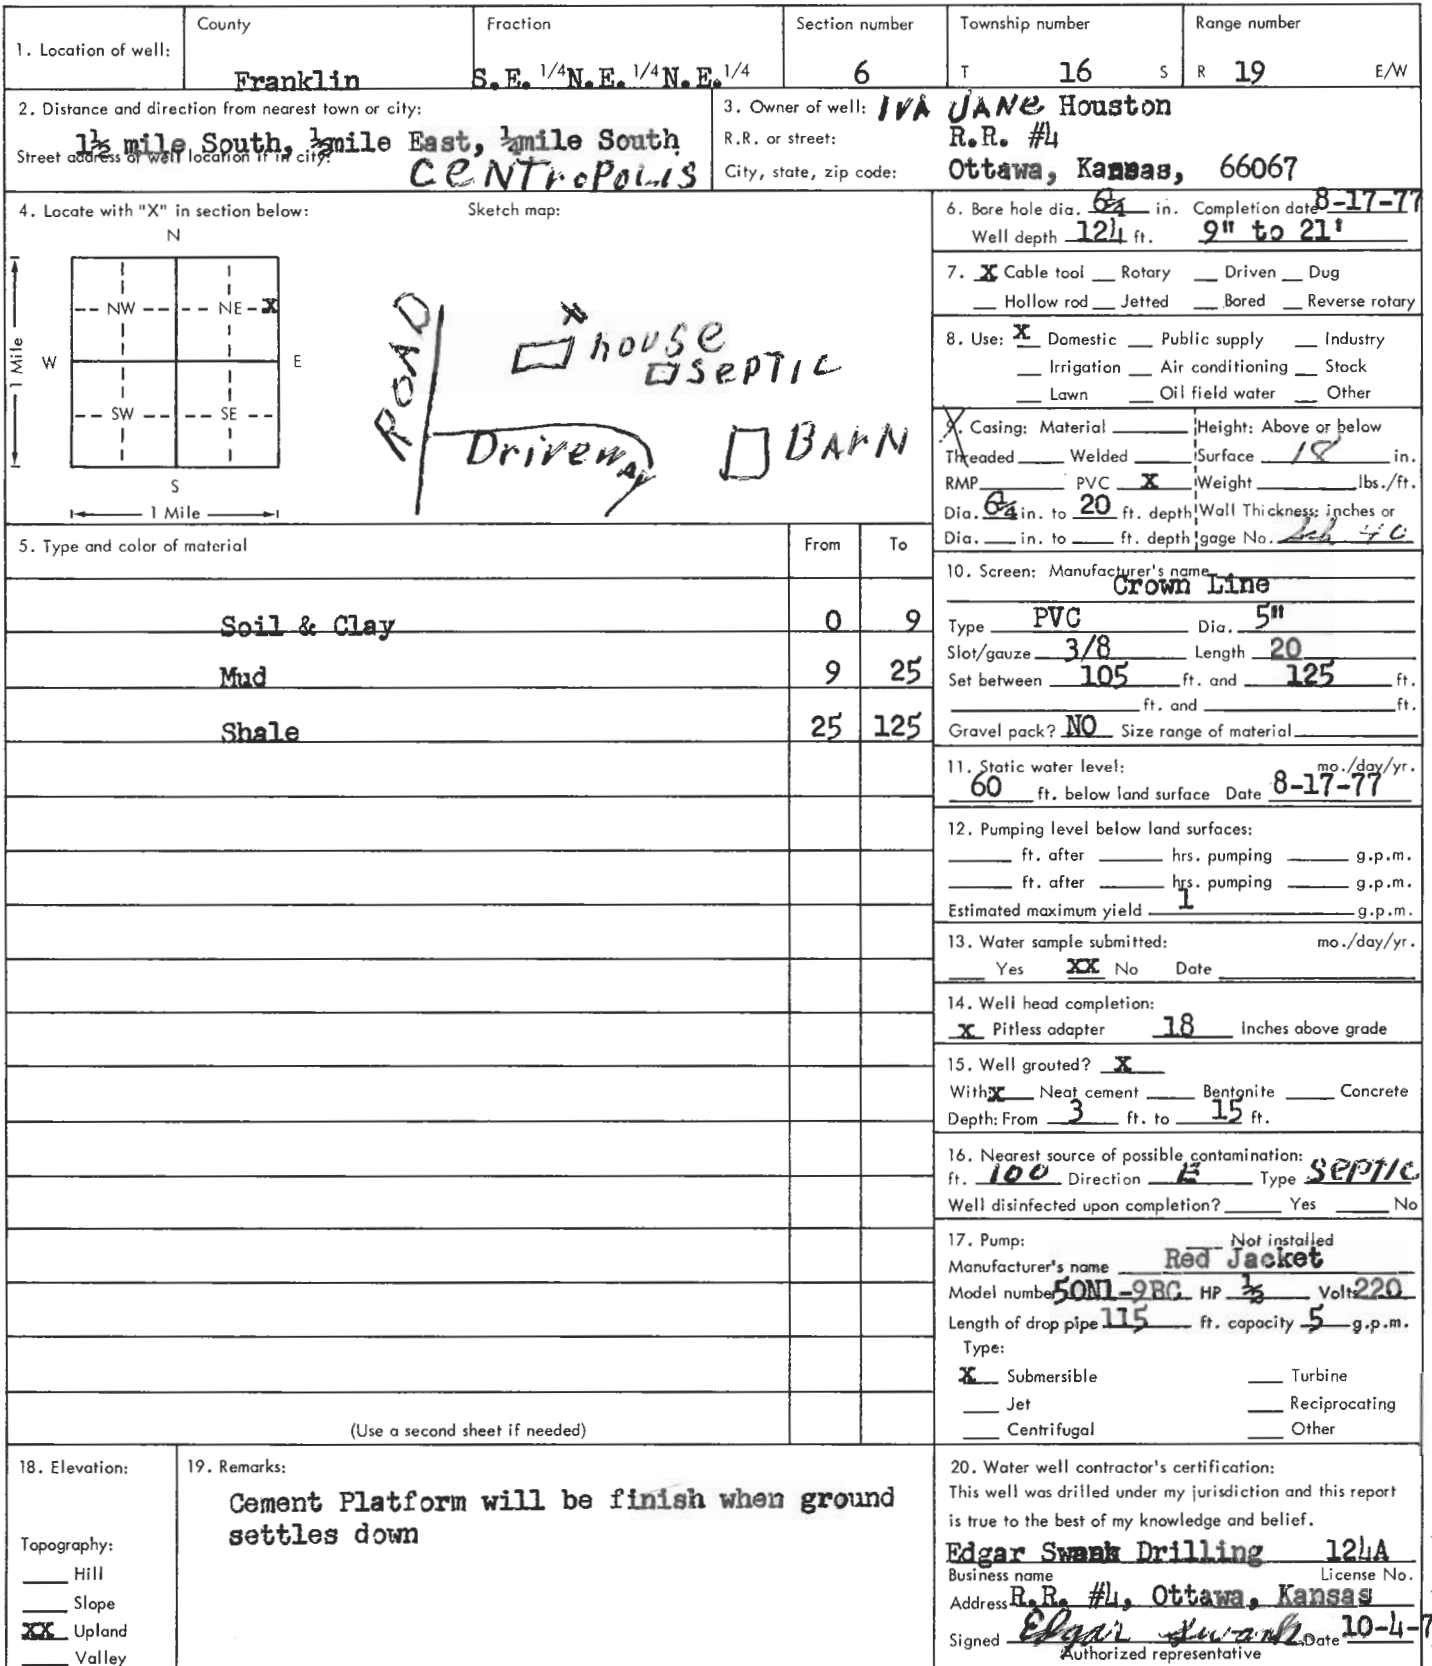 1. Location of well: County Fraction Section number Township number Range number
Franklin S.E. 1/4 N.E. 1/4 N.E. 1/4 6 T 16 S R 19 E/W
2. Distance and direction from nearest town or city:
1½ mile South, ½mile East, ½mile South
Street address of well location if in city:
CENTROPOLIS
3. Owner of well: IVA JANE Houston
R.R. or street: R.R. #4
City, state, zip code: Ottawa, Kansas, 66067
4. Locate with "X" in section below: Sketch map:
N
NW NE X
W E
SW SE
S
1 Mile
1 Mile
ROAD
X
house
SEPTIC
Driveway
BARN
5. Type and color of material From To
Soil & Clay 0 9
Mud 9 25
Shale 25 125
(Use a second sheet if needed)
6. Bore hole dia. 6¼ in. Completion date 8-17-77
Well depth 124 ft. 9" to 21'
7. X Cable tool Rotary Driven Dug
Hollow rod Jetted Bored Reverse rotary
8. Use: X Domestic Public supply Industry
Irrigation Air conditioning Stock
Lawn Oil field water Other
9. Casing: Material Height: Above or below
Threaded Welded Surface 18 in.
RMP PVC X Weight lbs./ft.
Dia. 6¼ in. to 20 ft. depth Wall Thickness: inches or
Dia. in. to ft. depth gage No. Sch 40
10. Screen: Manufacturer's name
Crown Line
Type PVC Dia. 5"
Slot/gauze 3/8 Length 20
Set between 105 ft. and 125 ft.
ft. and ft.
Gravel pack? NO Size range of material
11. Static water level: mo./day/yr.
60 ft. below land surface Date 8-17-77
12. Pumping level below land surfaces:
ft. after hrs. pumping g.p.m.
ft. after hrs. pumping g.p.m.
Estimated maximum yield 1 g.p.m.
13. Water sample submitted: mo./day/yr.
Yes XX No Date
14. Well head completion:
X Pitless adapter 18 Inches above grade
15. Well grouted? X
With: X Neat cement Bentonite Concrete
Depth: From 3 ft. to 15 ft.
16. Nearest source of possible contamination:
ft. 100 Direction E Type SEPTIC
Well disinfected upon completion? Yes No
17. Pump: Not installed
Manufacturer's name Red Jacket
Model number 50N1-9BC HP ½ Volts 220
Length of drop pipe 115 ft. capacity 5 g.p.m.
Type:
X Submersible Turbine
Jet Reciprocating
Centrifugal Other
18. Elevation:
Topography:
Hill
Slope
XX Upland
Valley
19. Remarks:
Cement Platform will be finish when ground
settles down
20. Water well contractor's certification:
This well was drilled under my jurisdiction and this report
is true to the best of my knowledge and belief.
Edgar Swank Drilling 124A
Business name License No.
Address R.R. #4, Ottawa, Kansas
Signed Edgar Swank Date 10-4-7
Authorized representative